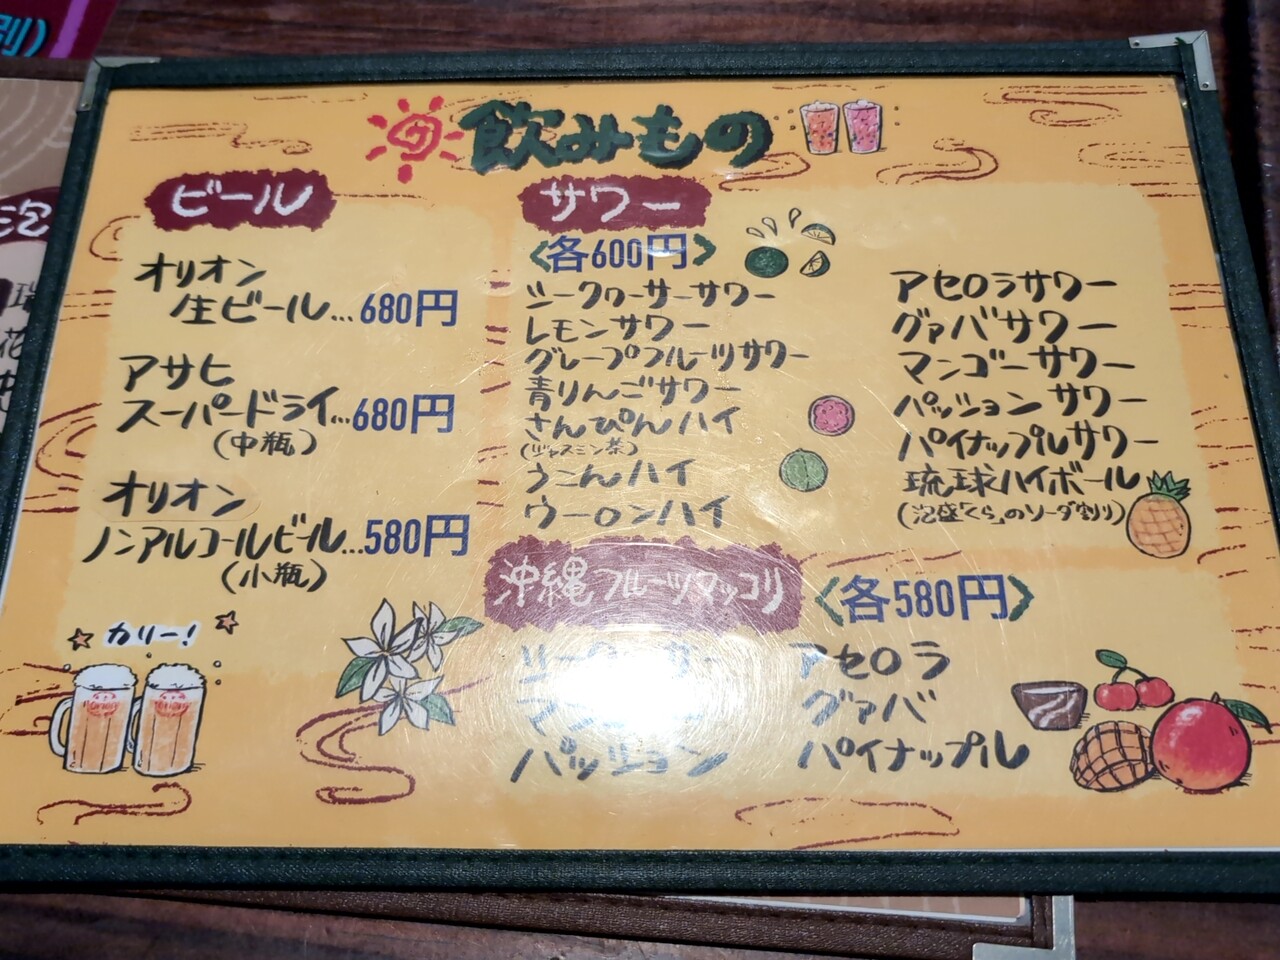 飲みもの
ビール
オリオン
生ビール…680円
アサヒ
スーパードライ…680円
(中瓶)
オリオン
ノンアルコールビール…580円
(小瓶)
カリー!
サワー
<各600円>
シークヮーサーサワー
レモンサワー
グレープフルーツサワー
青りんごサワー
さんぴんハイ
(ジャスミン茶)
うこんハイ
ウーロンハイ
アセロラサワー
グァバサワー
マンゴーサワー
パッションサワー
パイナップルサワー
琉球ハイボール
(泡盛「くら」のソーダ割り)
沖縄フルーツマッコリ
<各580円>
パッション
アセロラ
グァバ
パイナップル
割)
泡
花